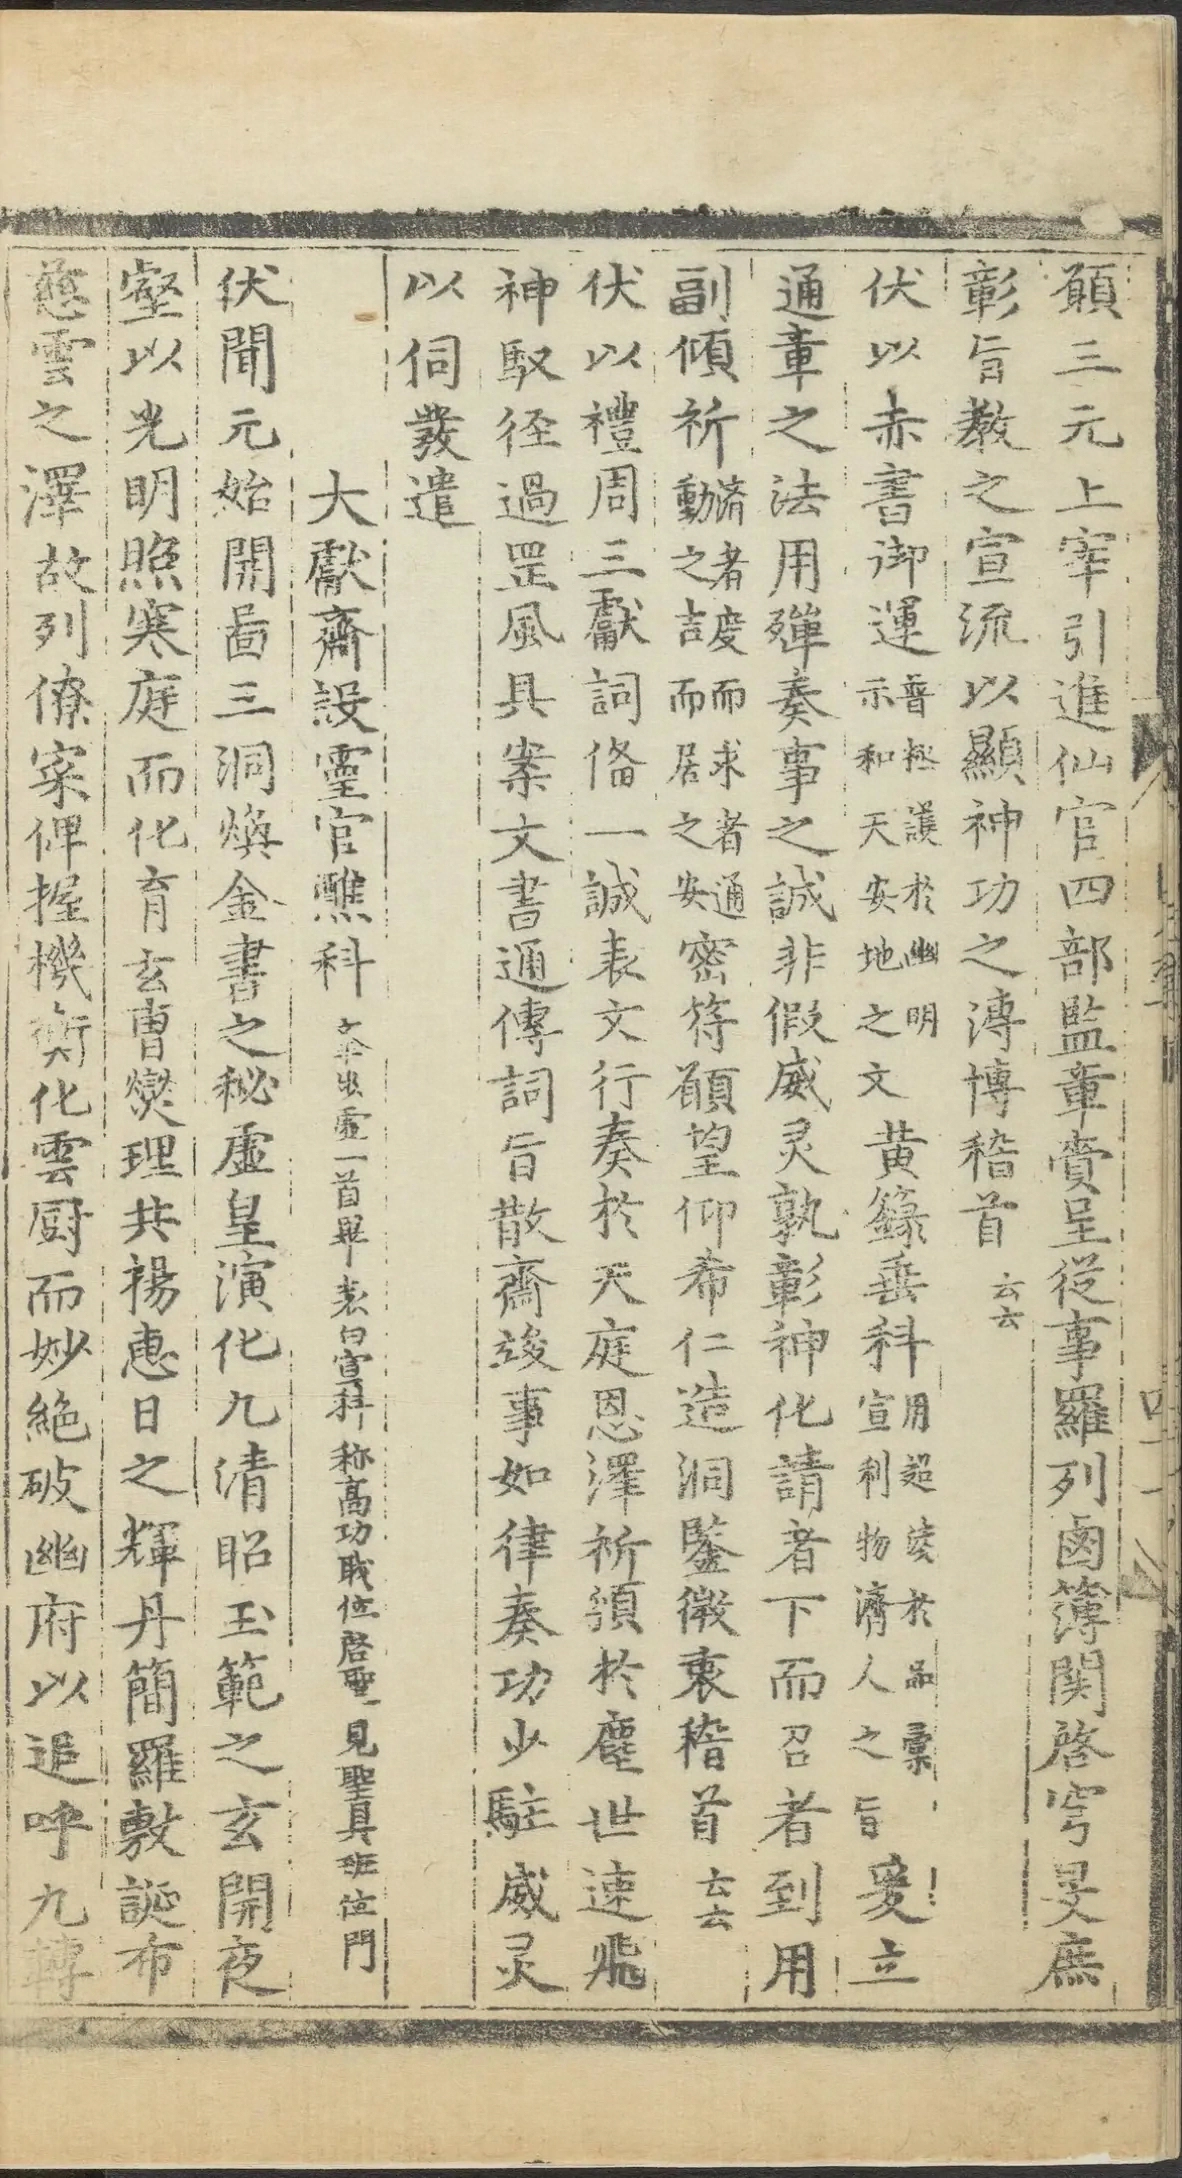 願三元上宰引進仙官四部監章賫呈從事羅列鹵簿関啓穹旻庶
彰旨教之宣流以顯神功之溥博稽首云云
伏以赤書御運普拯護於幽明示和天安地之文黄籙垂科用超淩於品彙宣利物濟人之旨爰立
通章之法用殫奏事之誠非假威灵孰彰神化請者下而召者到用
副傾祈濟者度而求者通動之吉而居之安密符願望仰希仁造洞鑒微衷稽首云云
伏以禮周三獻詞俻一誠表文行奏於天庭恩澤祈頒於塵世速飛
神馭径過罡風具案文書通傳詞旨散齋竣事如律奏功少駐威灵
以伺發遣
大獻齋設靈官醮科 文举出虚一首畢 表白宣科 称高功戢位啓聖 見聖具班位門
伏聞元始開啚三洞煥金書之秘虚皇演化九清昭玉範之玄開夜
壑以光明照寒庭而化育玄曹爕理共揚惠日之輝丹簡羅敷誕布
慈雲之澤故列僚寀俾握機衡化雲厨而妙絶破幽府以追呼九轉